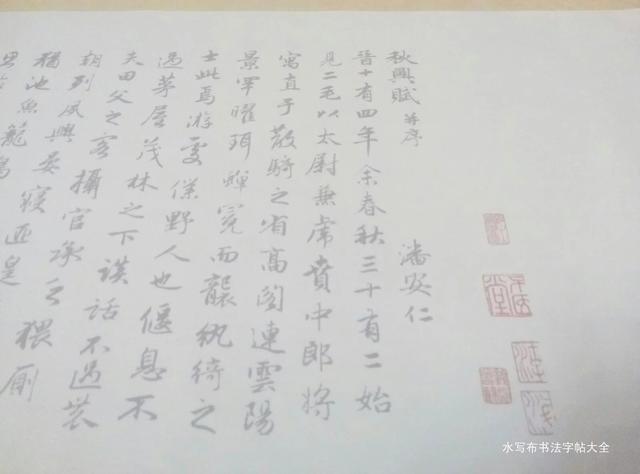 秋興賦 并序 潘安仁
晉十有四年余春秋三十有二始
見二毛以太尉兼虎賁中郎將
寓直于散騎之省高閣連雲陽
景罕曜珥蟬冕而襲紈綺之
士此焉游處僕野人也偃息不
過茅屋茂林之下談話不過農
夫田父之客攝官承乏猥廁
朝列夙興晏寢匪遑
猶池魚籠鳥
水写布书法字帖大全